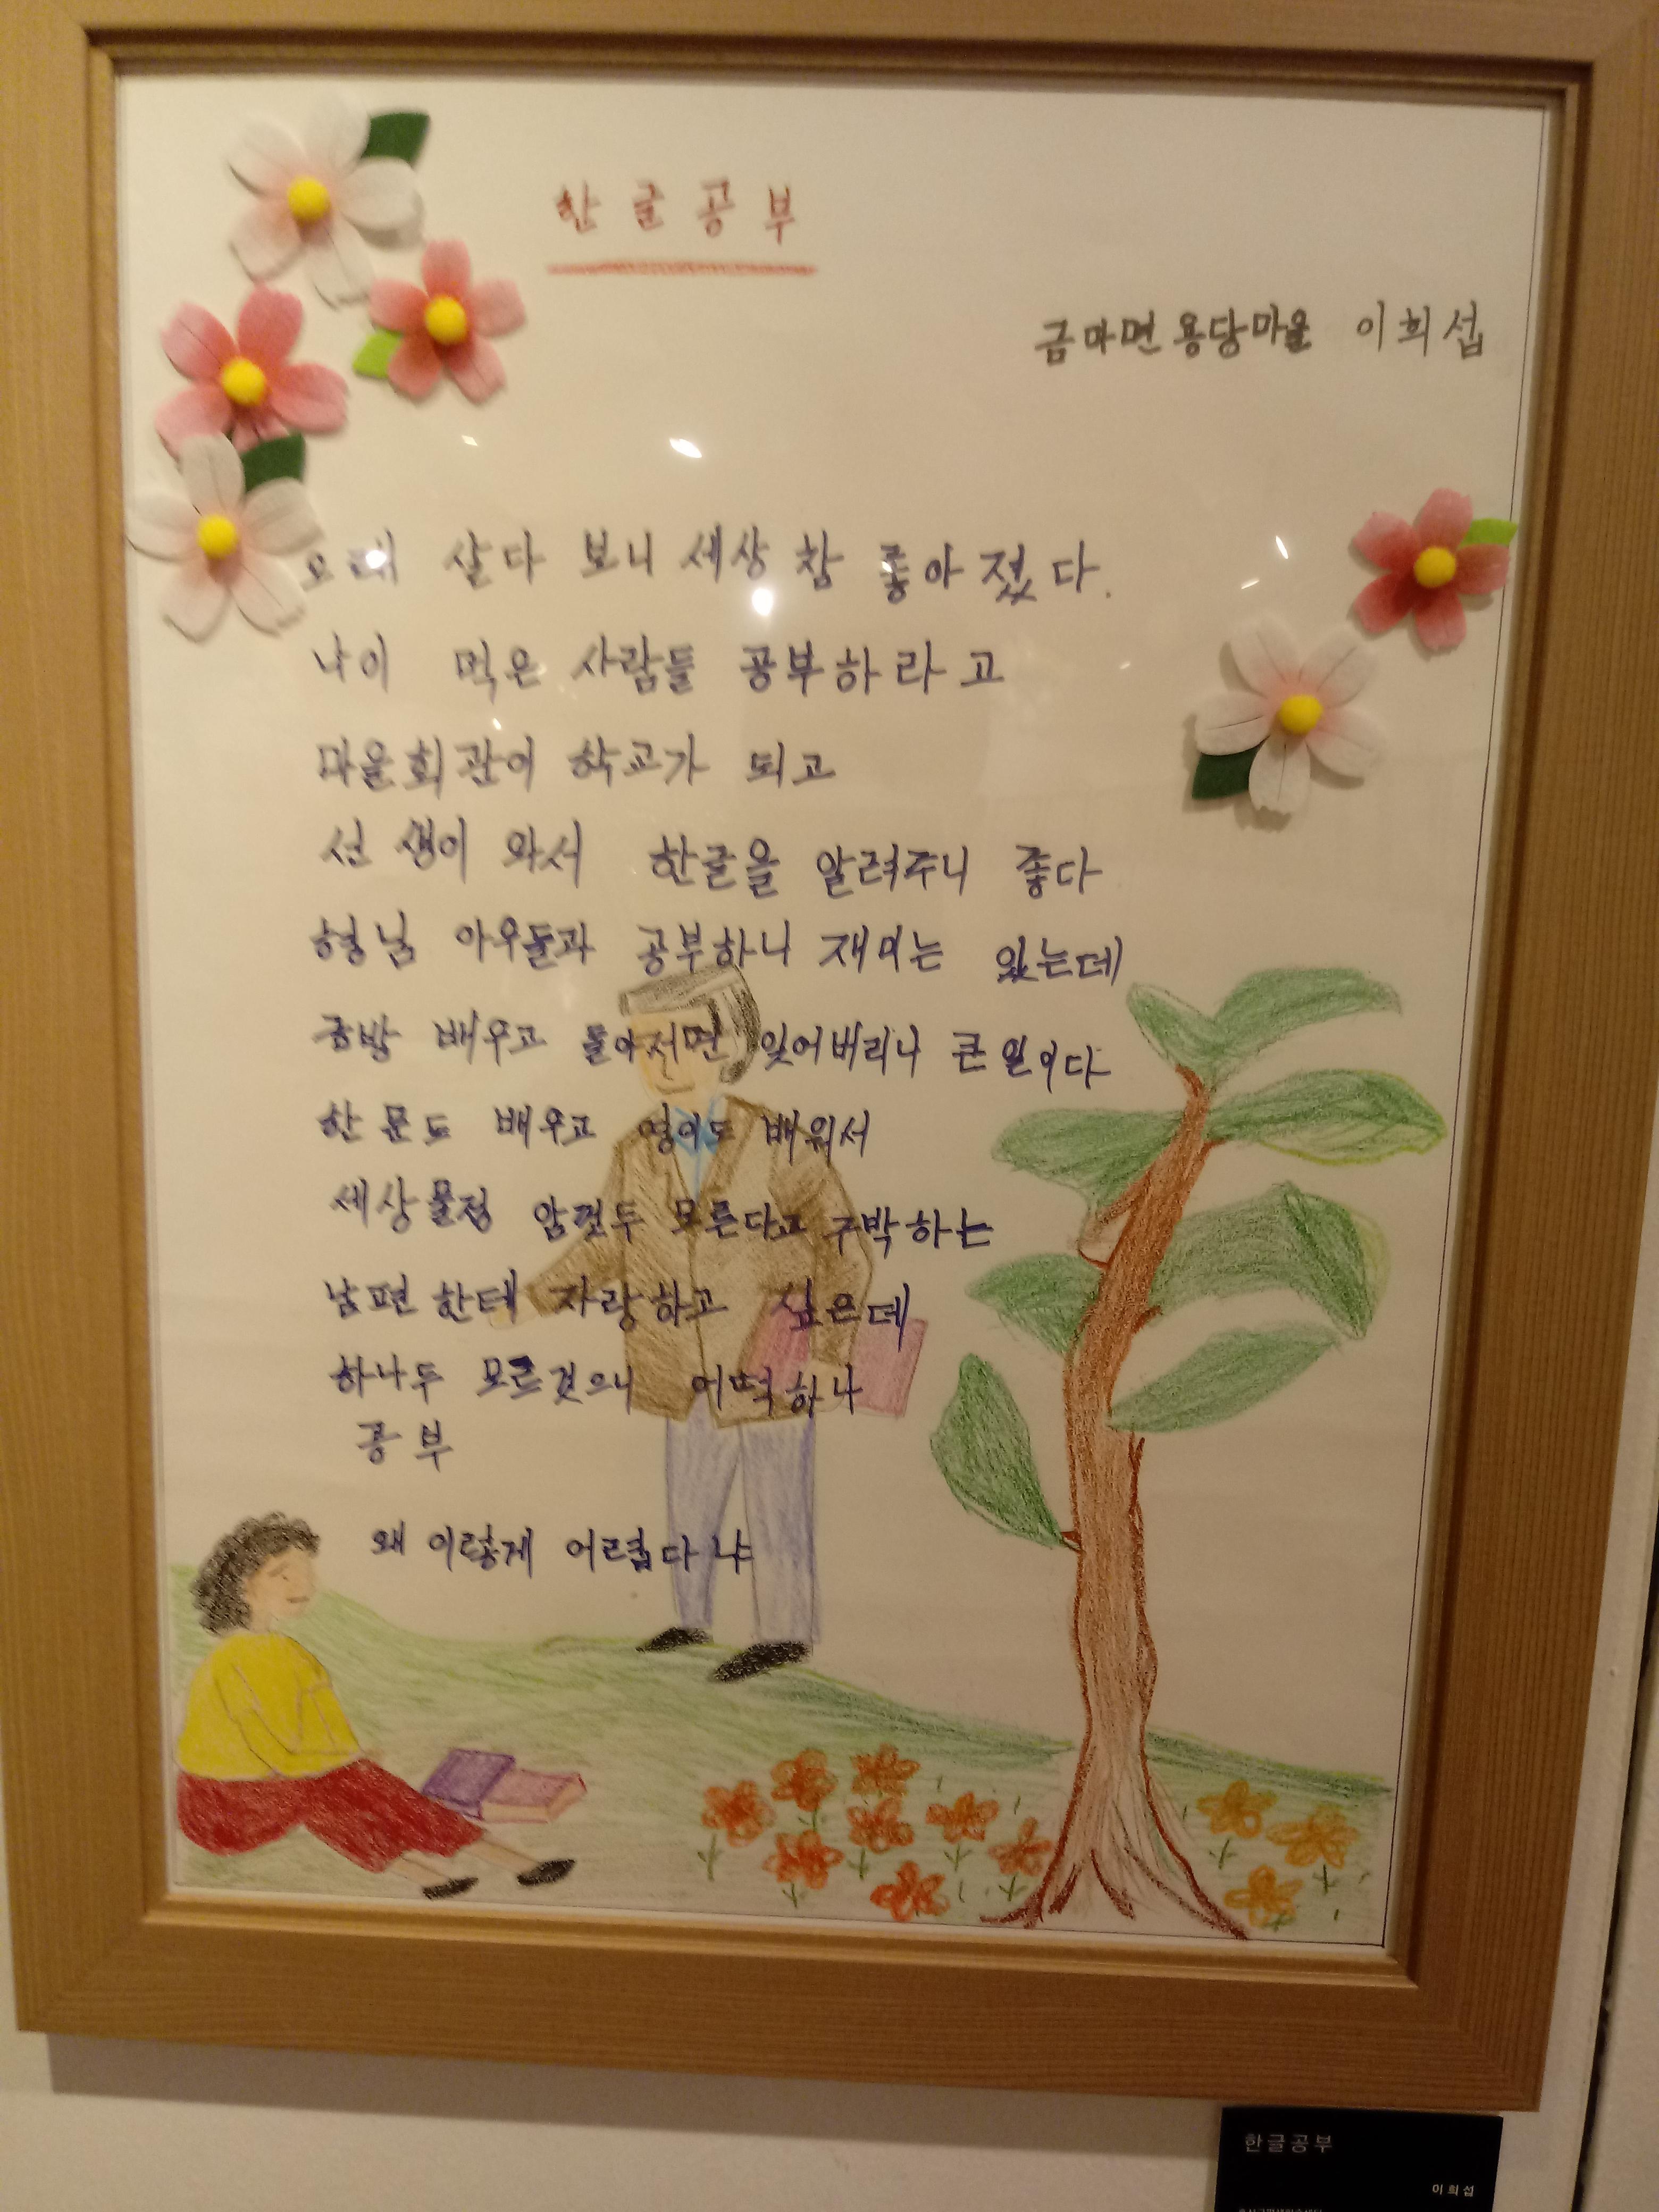 한글공부
금마면 용당마을 이희섭
오래 살다 보니 세상 참 좋아졌다.
나이 먹은 사람들 공부하라고
마을회관이 학교가 되고
선생이 와서 한글을 알려주니 좋다
형님 아우들과 공부하니 재미는 있는데
금방 배우고 돌아서면 잊어버리니 큰일이다
한문도 배우고 영어도 배워서
세상물정 암것두 모른다고 구박하는
남편한테 자랑하고 싶은데
하나두 모르겄으니 어떡하나
공부
왜 이렇게 어렵다냐
한글공부
이희섭